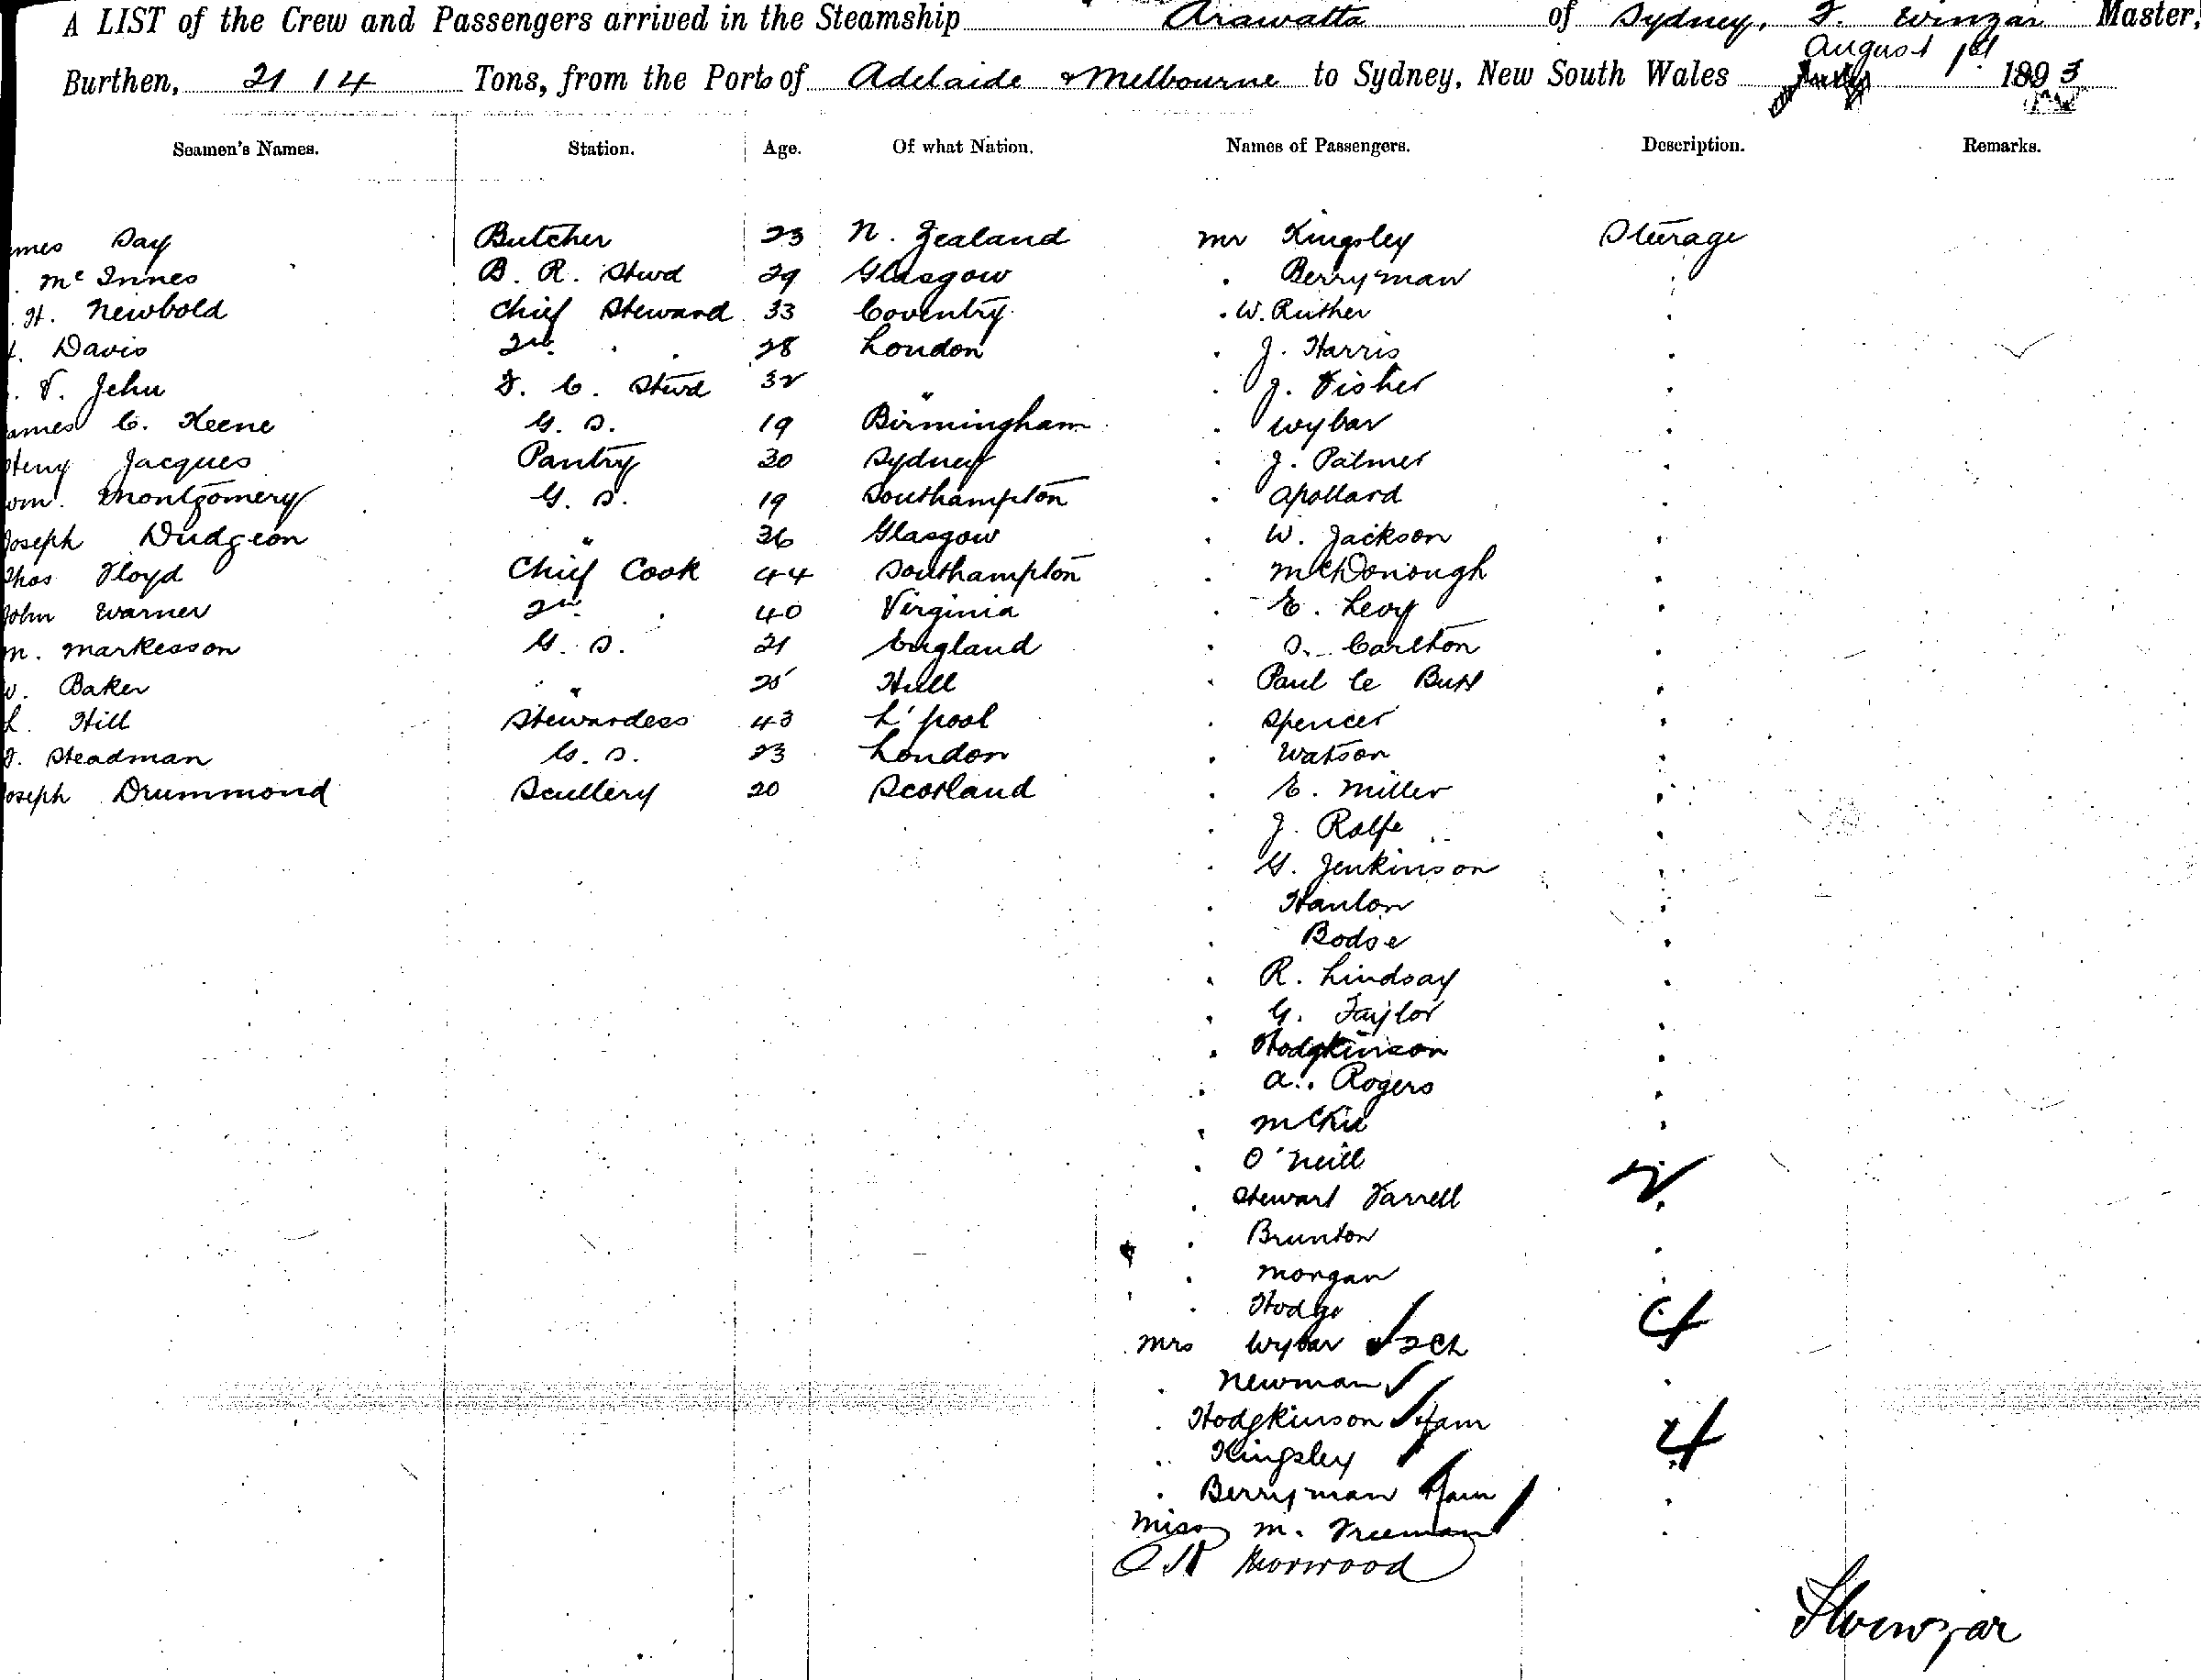 A LIST of the Crew and Passengers arrived in the Steamship Arawatta of Sydney, F. Winzar Master,
August 1st
Burthen, 2114 Tons, from the Ports of Adelaide & Melbourne to Sydney, New South Wales July 1893
Seamen's Names. Station. Age. Of what Nation. Names of Passengers. Description. Remarks.
ames Day Butcher 23 N. Zealand Mr Kingsley Steerage
. Mc Innes B. R. Stwd 29 Glasgow . Berryman .
. H. Newbold Chief Steward 33 Coventry . W. Ruther .
. Davis 2nd . . 28 London . J. Harris .
. V. Jehu F. C. Stwd 32 " . J. Fisher .
ames C. Keene G. S. 19 Birmingham . Wybar .
Heny Jacques Pantry 30 Sydney . J. Palmer .
Wm. Montgomery G. S. 19 Southampton . A Pollard .
Joseph Dudgeon " 36 Glasgow . W. Jackson .
Thos Floyd Chief Cook 44 Southampton . McDonough .
John Warner 2nd . 40 Virginia . E. Levy .
M. Markesson G. S. 21 England . S. Carlton .
W. Baker " 25 Hull . Paul le .
L. Hill Stewardess 43 L'pool . Spencer .
F. Steadman G. S. 23 London . Watson .
oseph Drummond Scullery 20 Scotland . E. Miller .
. J. Rolfe .
. G. Jenkinson .
. Hanlon .
. Bodse .
. R. Lindsay .
. G. Taylor .
. Hodgkinson .
. A. Rogers .
. McKie .
. O'Neill
. Stewart Farrell .
. Brunton .
. Morgan .
. Hodge
Mrs Wybar 2 Ch
. Newman .
. Hodgkinson & fam
. Kingsley 4
. Berryman & fam .
Miss M. Freeman .
Norwood
FWinzar